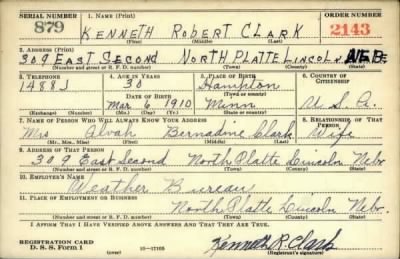 SERIAL NUMBER 1. NAME (Print) ORDER NUMBER
879 KENNETH ROBERT CLARK 2143
(First) (Middle) (Last)
2. ADDRESS (Print)
309 EAST SECOND NORTH PLATTE LINCOLN NEB
(Number and street or R. F. D. number) (Town) (County) (State)
3. TELEPHONE 4. AGE IN YEARS 5. PLACE OF BIRTH 6. COUNTRY OF CITIZENSHIP
1488J 30 Hampton
DATE OF BIRTH (Town or county)
Mar 6, 1910 Minn U. S. A.
(Exchange) (Number) (Mo.) (Day) (Yr.) (State or country)
7. NAME OF PERSON WHO WILL ALWAYS KNOW YOUR ADDRESS 8. RELATIONSHIP OF THAT PERSON
Mrs Alvah Bernadine Clark Wife
(Mr., Mrs., Miss) (First) (Middle) (Last)
9. ADDRESS OF THAT PERSON
309 East Second North Platte Lincoln Nebr
(Number and street or R. F. D. number) (Town) (County) (State)
10. EMPLOYER'S NAME
Weather Bureau
11. PLACE OF EMPLOYMENT OR BUSINESS
North Platte Lincoln Nebr.
(Number and street or R. F. D. number) (Town) (County) (State)
I AFFIRM THAT I HAVE VERIFIED ABOVE ANSWERS AND THAT THEY ARE TRUE.
REGISTRATION CARD
D. S. S. Form 1 16—17105 Kenneth R. Clark
(Registrant's signature)